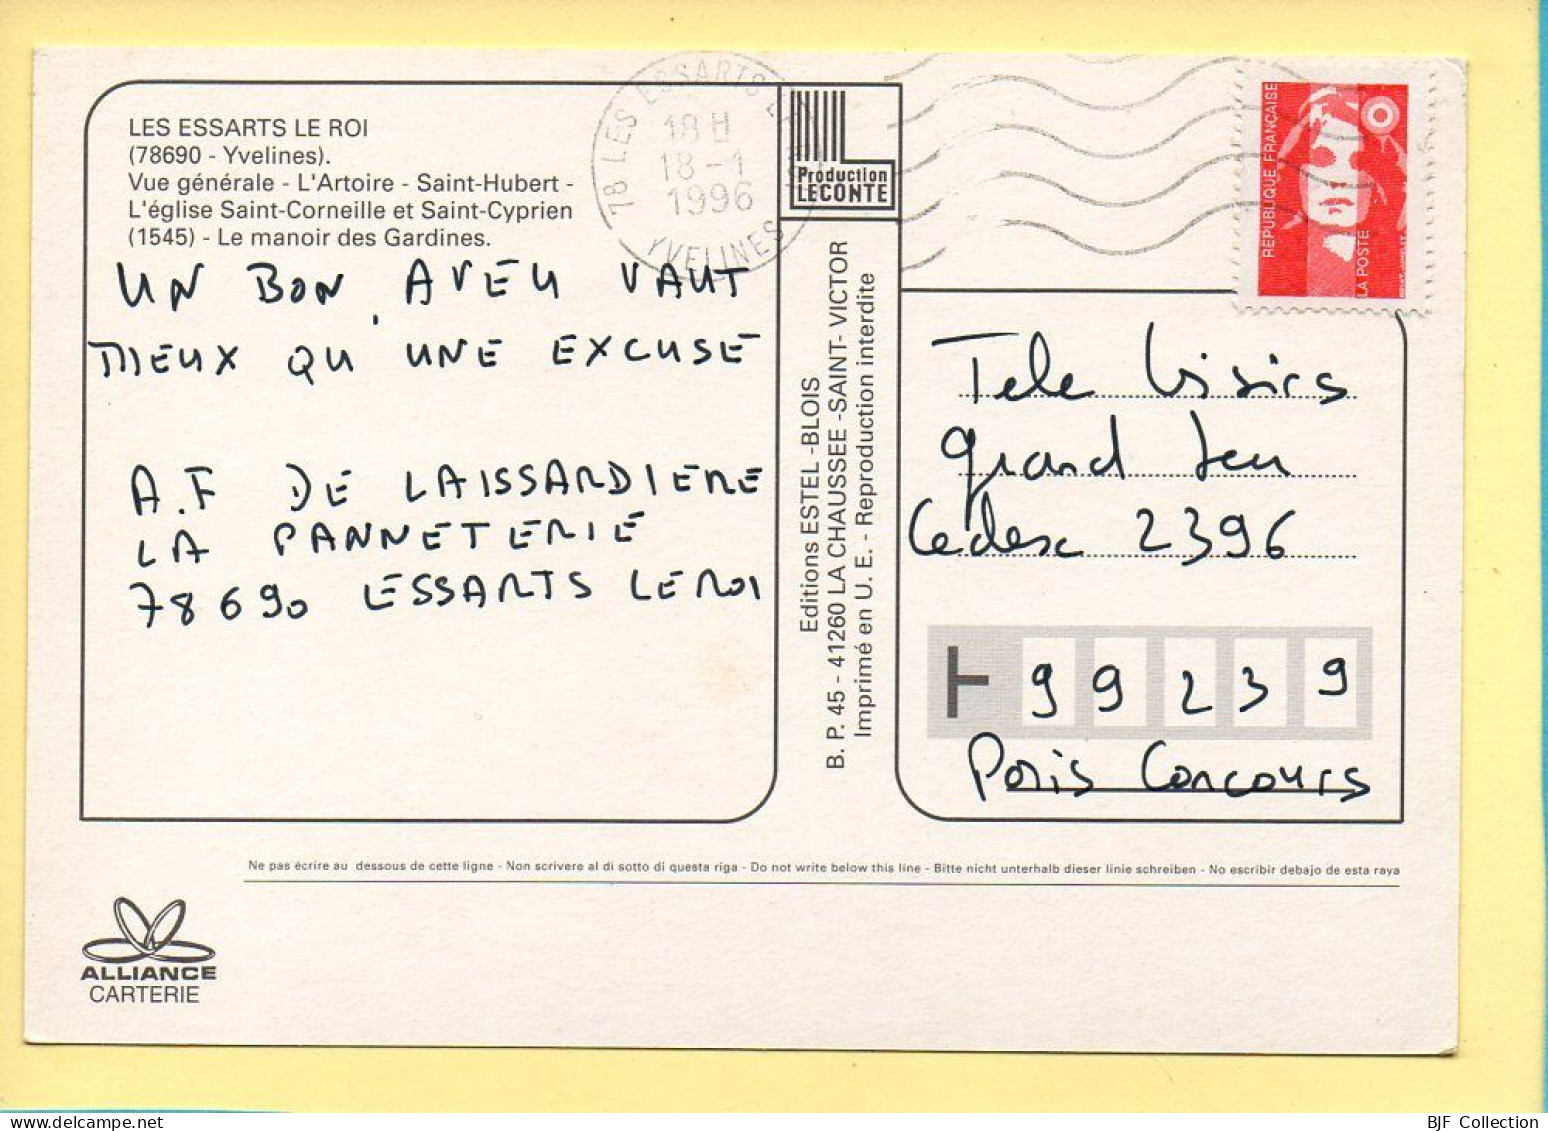 LES ESSARTS LE ROI
(78690 - Yvelines).
Vue générale - L'Artoire - Saint-Hubert -
L'église Saint-Corneille et Saint-Cyprien
(1545) - Le manoir des Gardines.
UN BON AVEU VAUT
MIEUX QU'UNE EXCUSE
A.F DE LAISSARDIERE
LA PANNETERIE
78690 ESSARTS LE ROI
78 LES ESSARTS
18 H
18 - 1
1996
YVELINES
Production
LECONTE
Editions ESTEL - BLOIS
B. P. 45 - 41260 LA CHAUSSEE - SAINT - VICTOR
Imprimé en U. E. - Reproduction interdite
REPUBLIQUE FRANÇAISE
LA POSTE
Tele Loisirs
grand Jeu
Cedex 2396
99239
Paris Concours
Ne pas écrire au dessous de cette ligne - Non scrivere al di sotto di questa riga - Do not write below this line - Bitte nicht unterhalb dieser linie schreiben - No escribir debajo de esta raya
ALLIANCE
CARTERIE
BJF Collection